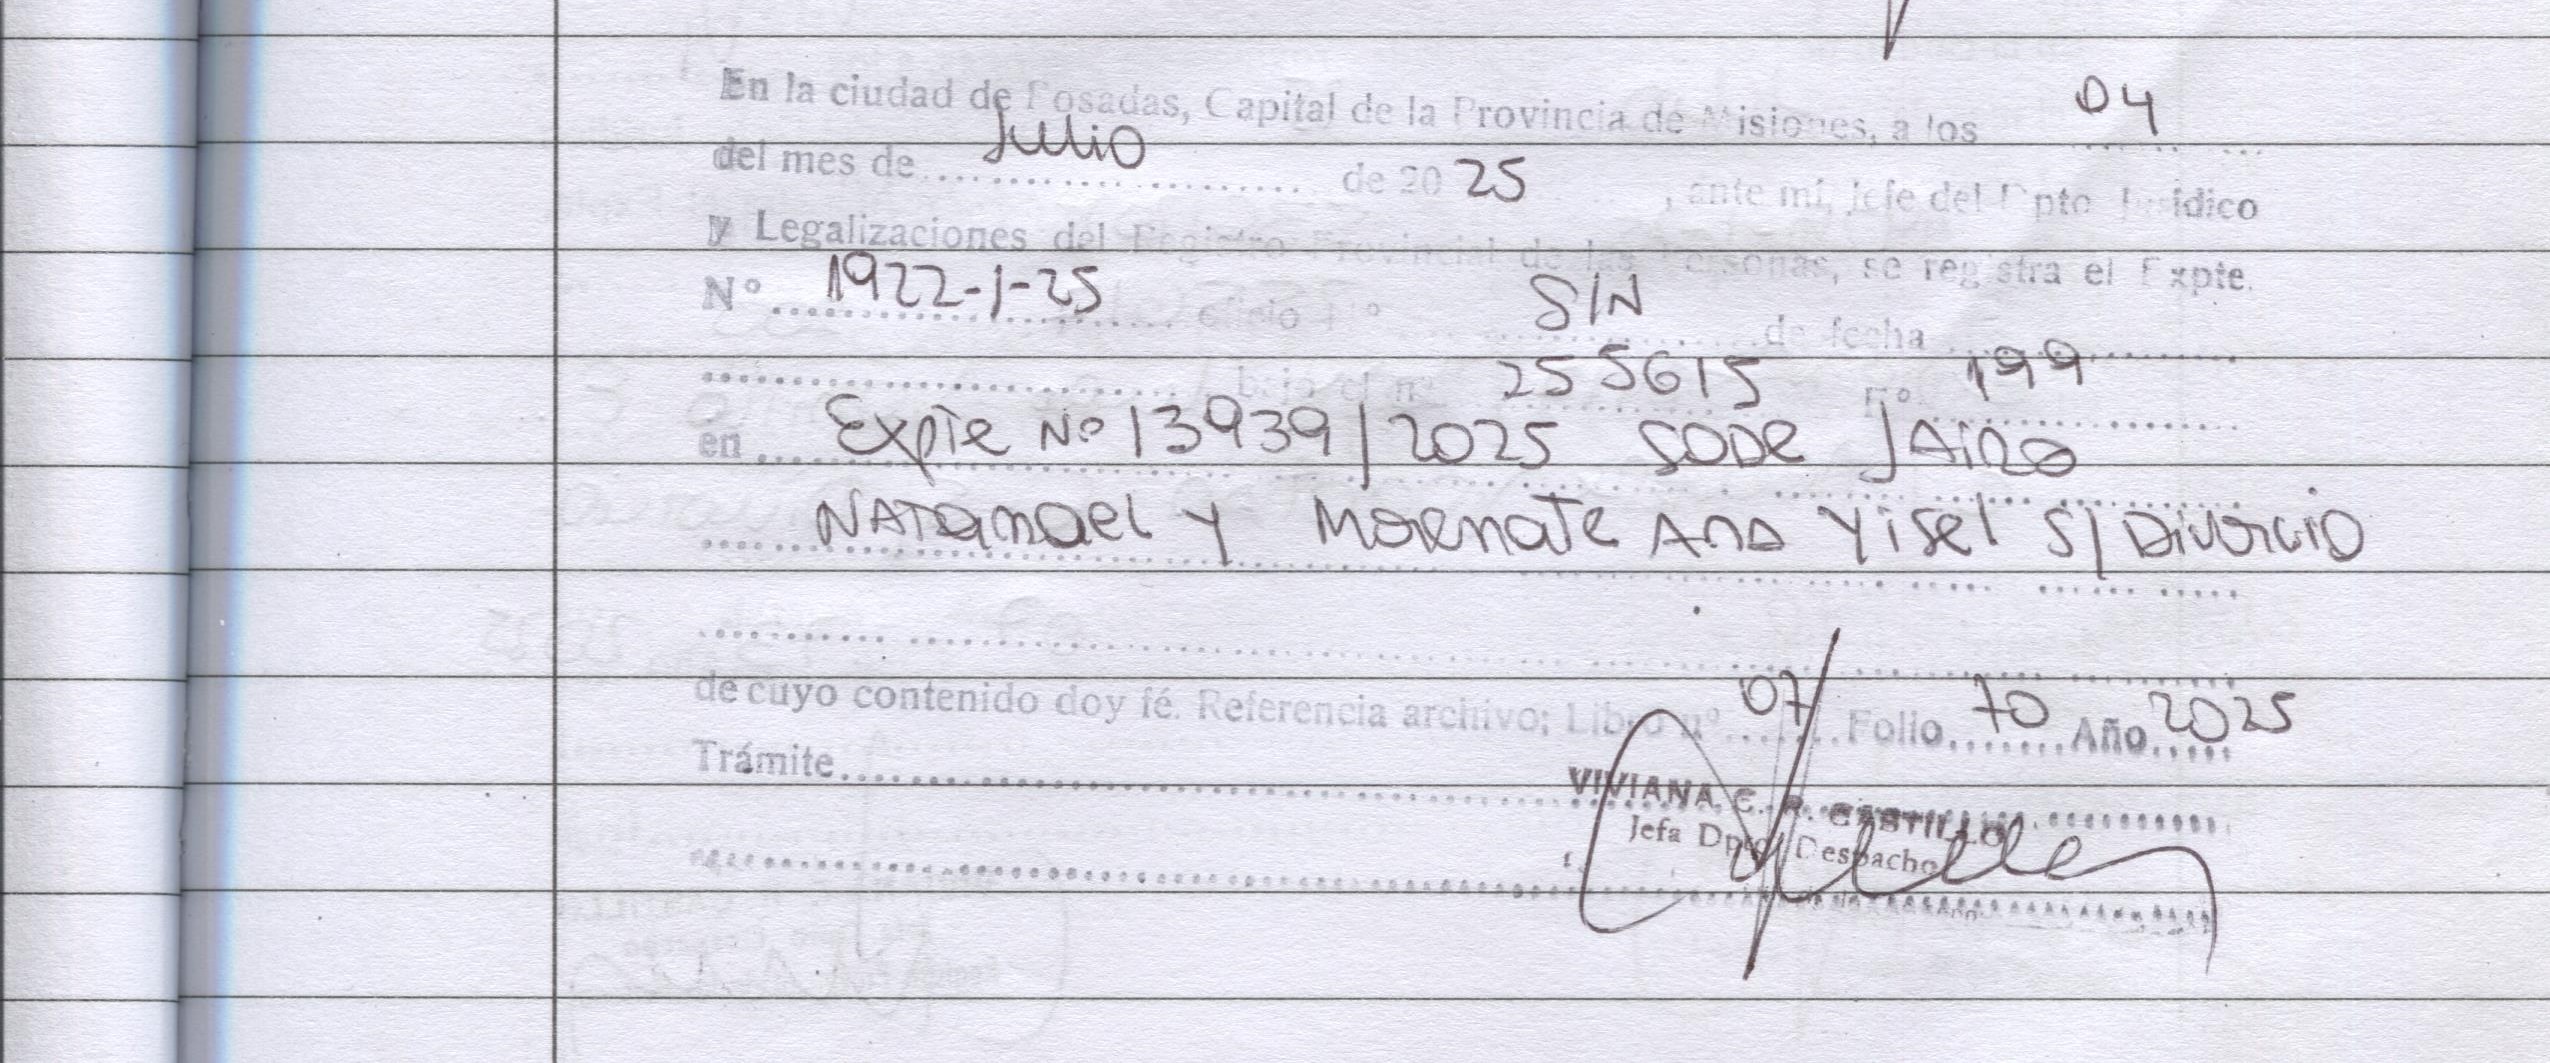 En la ciudad de Posadas, Capital de la Provincia de Misiones, a los 04
del mes de Julio de 2025, ante mí, Jefe del Dpto Jurídico
y Legalizaciones del Registro Provincial de las Personas, se registra el Expte.
Nº 1922-1-25 oficio Nº S/N de fecha
bajo el nº 255615 Fº 199
en Expte Nº 13939/2025 SODE JAIRO
NATANAEL Y MORENATE ANA YISEL S/ DIVORCIO
de cuyo contenido doy fé. Referencia archivo: Libro nº 07 Folio 70 Año 2025
Trámite
VIVIANA E. R. CASTILLO
Jefa Dpto Despacho